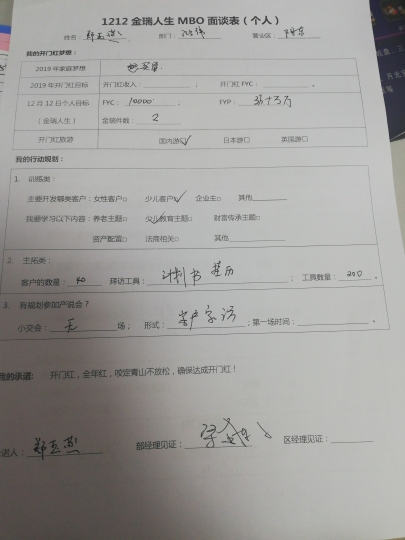 1212金瑞人生MBO面谈表（个人）
姓名： 部门： 营业区：
我的开门红梦想：
2019年家庭梦想 买车
2019年开门红目标 开门红收入： ； 开门红FYC： 。
12月12日个人目标 FYC：10000 FYP：
（金瑞人生） 金瑞件数：2
开门红旅游 国内游☑ 日本游□ 英国游□
我的行动规划：
1. 训练类：
主要开发哪类客户：女性客户□ 少儿客户☑ 企业主□ 其他
我要学习以下内容：养老主题□ 少儿教育主题☑ 财富传承主题□
资产配置□ 法商相关□ 其他
2. 主拓类：
客户的数量：40 拜访工具：计划书 ；工具数量：200 。
3. 有规划参加产说会？
小交会：无 场； 形式： ；第一场时间： 。
我的承诺： 开门红，全年红，咬定青山不放松，确保达成开门红！
诺人： 部经理见证： 区经理见证：